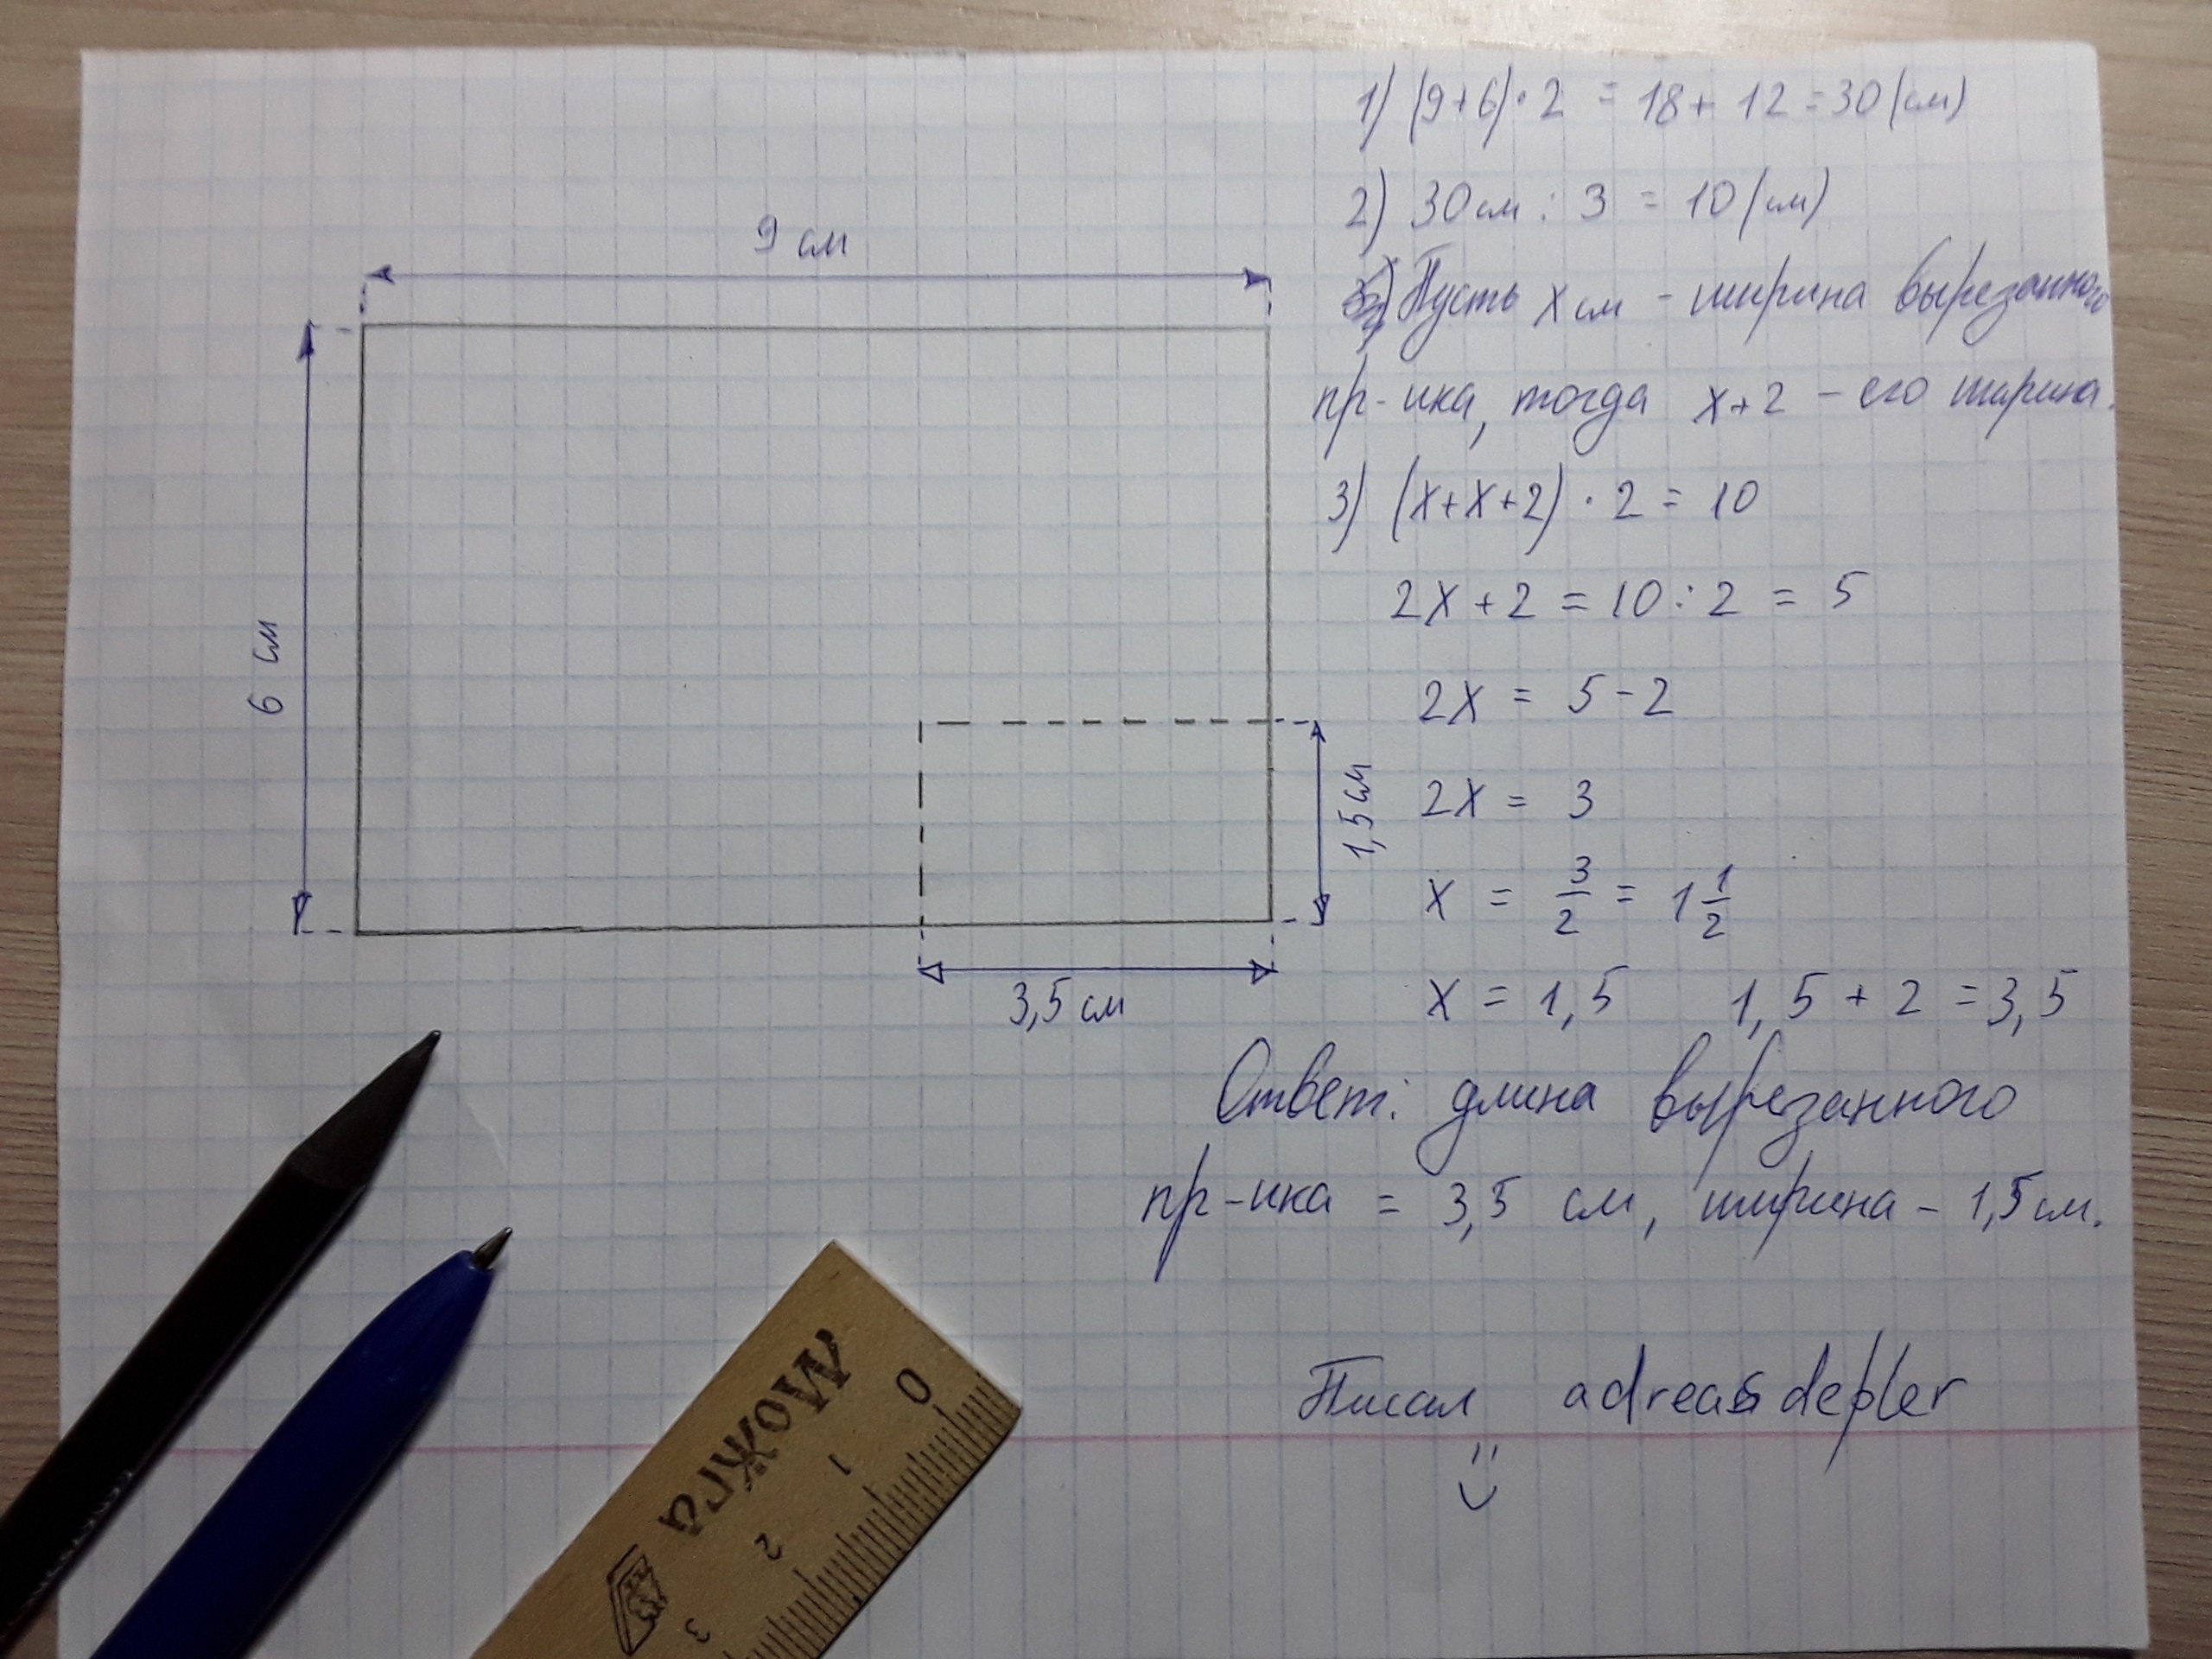 1) (9+6)·2 = 18+12=30(см)
2) 30см : 3 = 10(см)
Пусть x см - ширина вырезанного
пр-ика, тогда x+2 - его ширина.
3) (x+x+2)·2 = 10
2x+2 = 10:2 = 5
2x = 5-2
2x = 3
x = 3/2 = 1 1/2
x = 1,5 1,5+2=3,5
Ответ: длина вырезанного
пр-ика = 3,5 см, ширина - 1,5см.
Писал adreasdepler
9 см
6 см
1,5см
3,5 см
МОЖГА
0
1
2
3